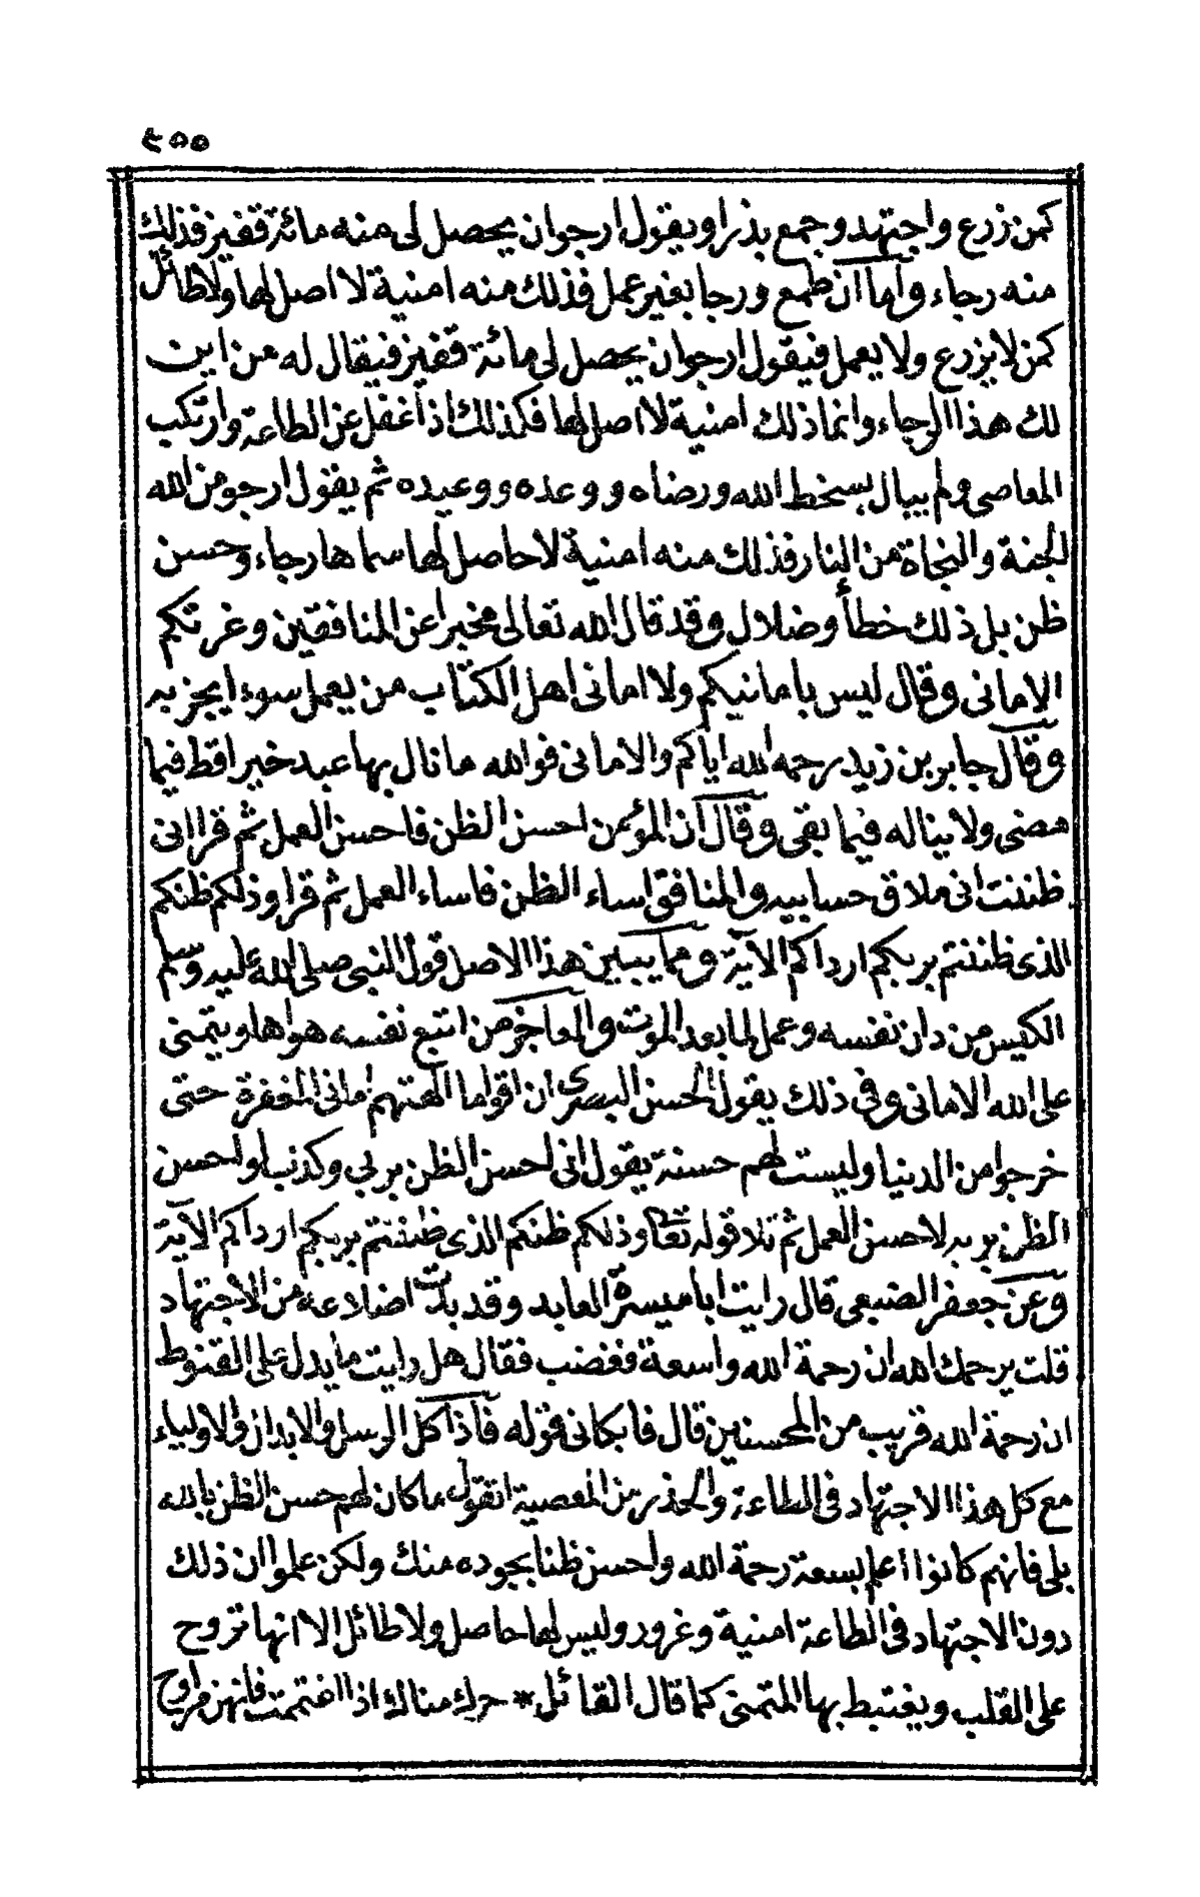 ٤٥٥
كمن زرع واجتهد وجمع بذرا ويقول ارجوان يحصل لى منه مائة قفيز فذلك
منه رجاء واما ان طمع ورجا بغير عمل فذلك منه امنية لا اصل لها ولا طائل
كمن لا يزرع ولا يعمل فيقول ارجوان يحصل لى مائة قفيز فيقال له من اين
لك هذا الرجاء وانما ذلك امنية لا اصل لها فكذلك اذا غفل عن الطاعة وارتكب
المعاصى ولم يبال بسخط الله ورضاه ووعده ووعيده ثم يقول ارجو من الله
الجنة والنجاة من النار فذلك منه امنية لا حاصل لها سماها رجاء وحسن
ظن بل ذلك خطأ وضلال وقد قال الله تعالى مخبرا عن المنافقين وغرتكم
الامانى وقال ليس بامانيكم ولا امانى اهل الكتاب من يعمل سوءا يجز به
وقال جابر بن زيد رحمه الله اياكم والامانى فوالله ما نال بها عبد خيرا قط فيما
مضى ولا يناله فيما بقى وقال ان المؤمن احسن الظن فاحسن العمل ثم قرا انى
ظننت انى ملاق حسابيه والمنافق اساء الظن فاساء العمل ثم قرا وذلكم ظنكم
الذى ظننتم بربكم ارداكم الآية ومما يبين هذا الاصل قول النبى صلى الله عليه وسلم
الكيس من دان نفسه وعمل لما بعد الموت والعاجز من اتبع نفسه هواها ويتمنى
على الله الامانى وفى ذلك يقول الحسن البسرى ان اقواما الهتهم امانى المغفرة حتى
خرجوا من الدنيا وليست لهم حسنة يقول انى احسن الظن بربى وكذب لو احسن
الظن بربه لاحسن العمل ثم تلا قوله تعا وذلكم ظنكم الذى ظننتم بربكم ارداكم الآية
وعن جعفر الضبعى قال رايت ابا ميسرة العابد وقد بدت اضلاعه من الاجتهاد
قلت يرحمك الله ان رحمة الله واسعة فغضب فقال هل رايت ما يدل على القنوط
ان رحمة الله قريب من المحسنين قال فابكانى قوله فاذا كل الرسل والابدال والاولياء
مع كل هذا الاجتهاد فى الطاعة والحذر من المعصية اتقول ما كان لهم حسن الظن بالله
بلى فانهم كانوا اعلم بسعة رحمة الله واحسن ظنا بجوده منك ولكن علموا ان ذلك
دون الاجتهاد فى الطاعة امنية وغرور وليس لها حاصل ولا طائل الا انها تروح
على القلب ويغتبط بها المتمنى كما قال القائل * حرك مناك اذا اغتممت فانهن مراوح